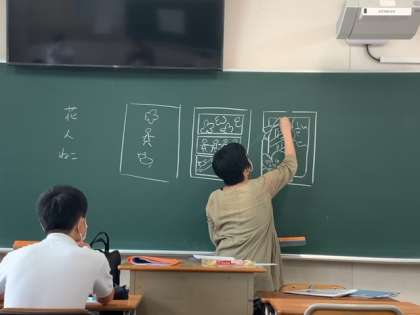 花
人
ねこ